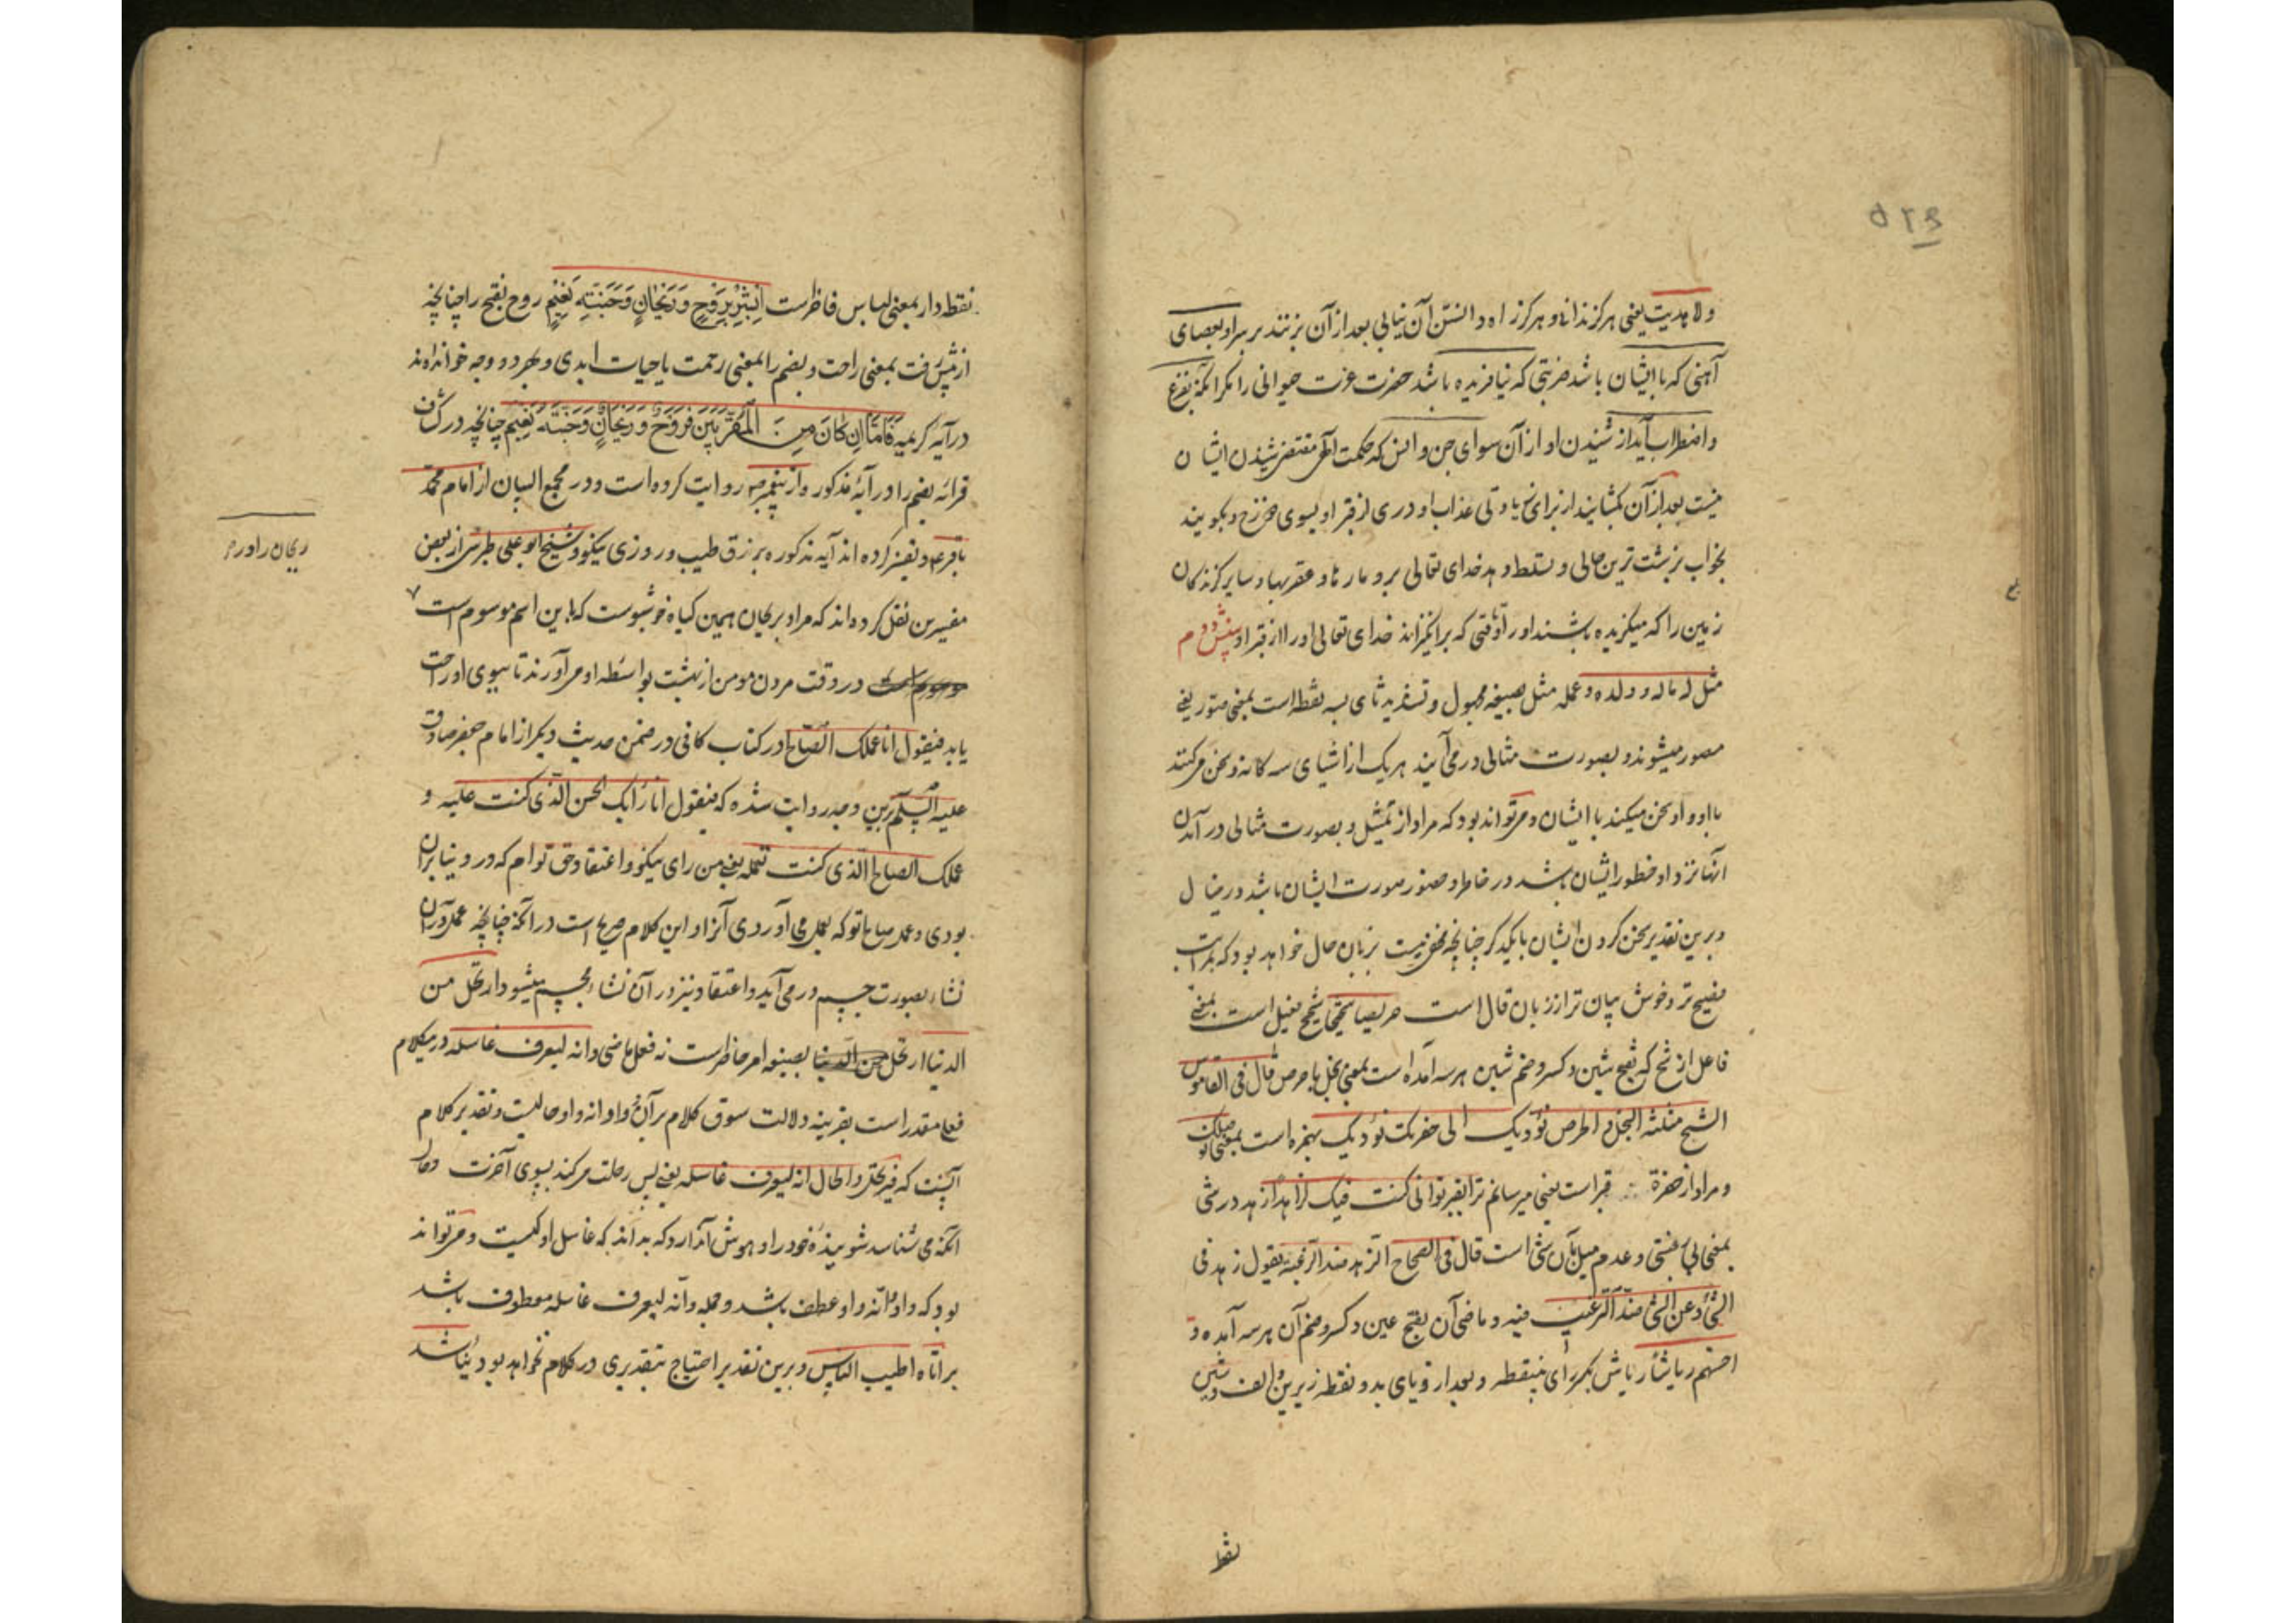 ولا هدیت یعنی هرگز ندانی و هرگز راه دانستن آن نیابی بعد از آن بزنند بر سر او بعصای
آهنی که با ایشان باشد ضربتی که نیافریده باشد حضرت عزت حیوانی را مگر آنکه بفزع
و اضطراب آید از شنیدن او از آن سوای جن و انس که حکمت الهی مقتضی شنیدن ایشان
نیست بعد از آن بگشایند از برای عذاب او دری از قبر او بسوی دوزخ و بگویند
بخواب بزشت ترین حالی و تسلط دهد خدای تعالی برو مارها و عقربها و سایر گزندگان
زمین را که میگزیده باشند او را تا وقتی که برانگیزاند خدای تعالی او را از قبر او
مثل له ماله و ولده و عمله مثل بصیغه مجهول و تشدید ثای سه نقطه است بمعنی صور یعنی
مصور میشوند و بصورت مثالی در می آیند هر یک از اشیای سه گانه و سخن میکنند
با او و او سخن میکند با ایشان و میتواند بود که مراد از تمثیل و بصورت مثالی در آمدن
آنها نزد او خطور ایشان باشد در خاطر و حضور صورت ایشان باشد در خیال
و برین تقدیر سخن کردن ایشان با یکدیگر چنانچه مخفی نیست بزبان حال خواهد بود که بمراتب
فصیح تر و خوش بیان تر از زبان قال است حریصا شحیحا شحیح فعیل است بمعنی
فاعل از شح که بفتح شین و کسر و ضم شین هر سه آمده است بمعنی بخل با حرص قال فی القاموس
الشح مثلثه البخل و الحرص نؤدیک الی حفرتک نؤدیک بهمزه است بمعنی نوصلک
و مراد از حفرة قبر است یعنی میرسانم ترا بقبر تو انی کنت فیک لزاهدا زهد در شی
بمعنی بی رغبتی و عدم میل بآن شی است قال فی الصحاح الزهد ضد الرغبة یقول زهد فی
الشیء و عن الشیء ضد الرغب فیه و ماضی آن بفتح عین و کسر و ضم آن هر سه آمده و
احسنهم ریاشا ریاش بکسر رای بینقطه و بعد از و یای بدو نقطه زیرین و الف و شین
نقط
نقطه دار بمعنی لباس فاخر است ابشر بروح وریحان وجنة نعیم روح بفتح را چنانچه
از پیش رفت بمعنی راحت و بضم را بمعنی رحمت یا حیات ابدی و بهر دو وجه خوانده اند
در آیه کریمه فاما ان کان من المقربین فروح وریحان وجنة نعیم چنانچه در کشاف
قرائه بضم را در آیه مذکور را از پیغمبر روایت کرده است و در مجمع البیان از امام محمد
باقر و تفسیر کرده اند آیه مذکوره برزق طیب و روزی نیکو و شیخ ابو علی طبرسی از بعض
ریحان را در
مفسرین نقل کرده اند که مراد بریحان همین گیاه خوشبوست که باین اسم موسوم است
در وقت مردن مومن از بهشت بواسطه او می آورند تا ببوی او راحت
یابد فیقول انا عملک الصالح در کتاب کافی در ضمن حدیث دیگر از امام جعفر صادق
علیه السلم برین وجه روایت شده که فیقول انا رایک الحسن الذی کنت علیه و
عملک الصالح الذی کنت تعمله یعنی من رای نیکو و اعتقاد حق توام که در دنیا بران
بودی و عمل صالح تو که بعمل می آوردی آنرا و این کلام صریح است در آنکه چنانچه عمل در آن
نشاء بصورت جسم در می آید و اعتقاد نیز در آن نشاء مجسم میشود ارتحل من
الدنیا ارتحل بصیغه امر حاضر است نه فعل ماضی وانه لیعرف غاسله درین کلام
فعل مقدر است بقرینه دلالت سوق کلام بر آن و واو انه واو حالیت و تقدیر کلام
آنست که فیرتحل والحال انه لیعرف غاسله یعنی پس رحلت میکند بسوی آخرت و حال
آنکه می شناسد شوینده خود را و هوش آن دارد که بداند که غاسل او کیست و میتواند
بود که واو وانه واو عطف باشد و جمله وانه لیعرف غاسله معطوف باشد
بر اتاه اطیب الناس و برین تقدیر احتیاج بتقدیری در کلام نخواهد بود